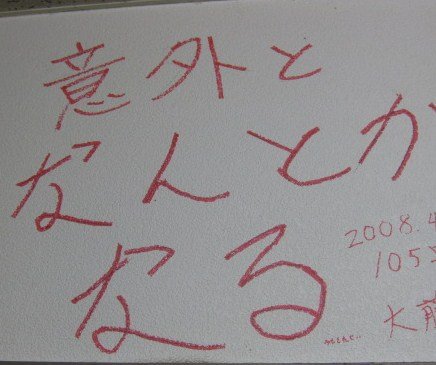 意外と
なんとか
なる
2008.4
105
大